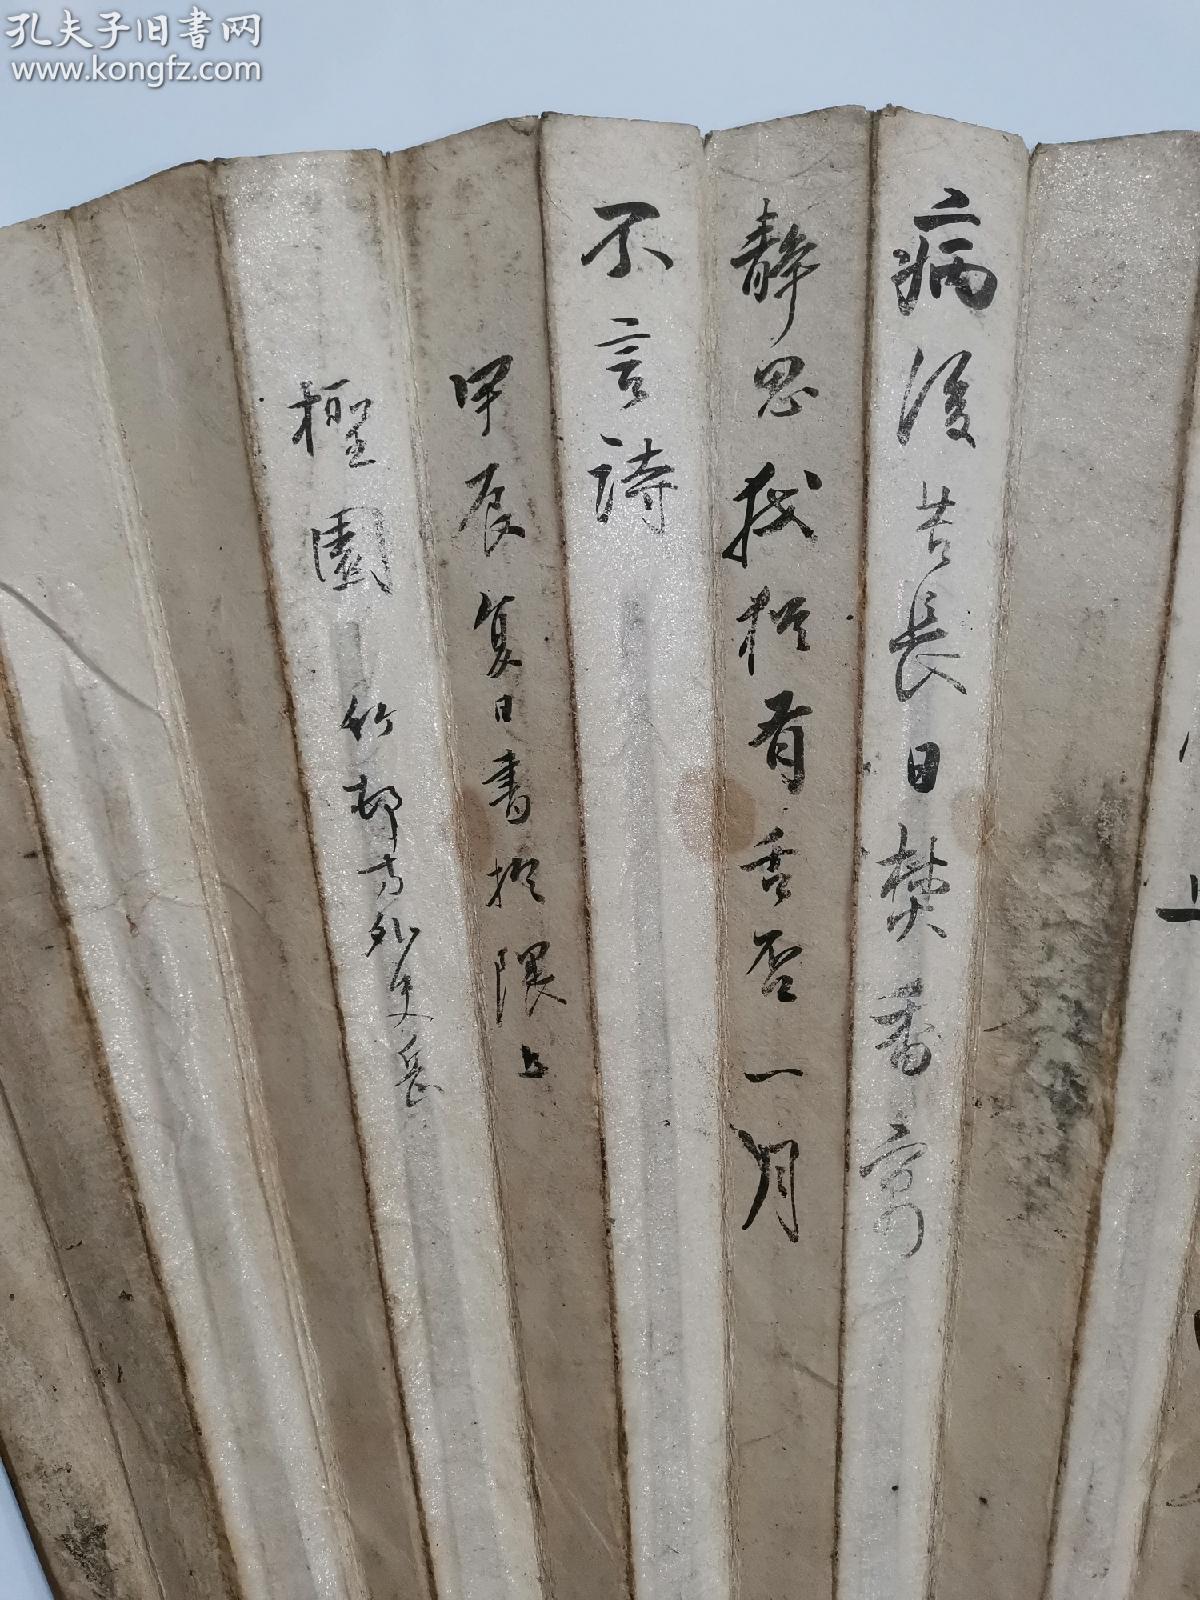 孔夫子旧書网
www.kongfz.com
上
病後苦長日焚香寄
静思我猶有舌否一月
不言詩
甲辰夏日書於隈上
檉園 竹邨方外史岳